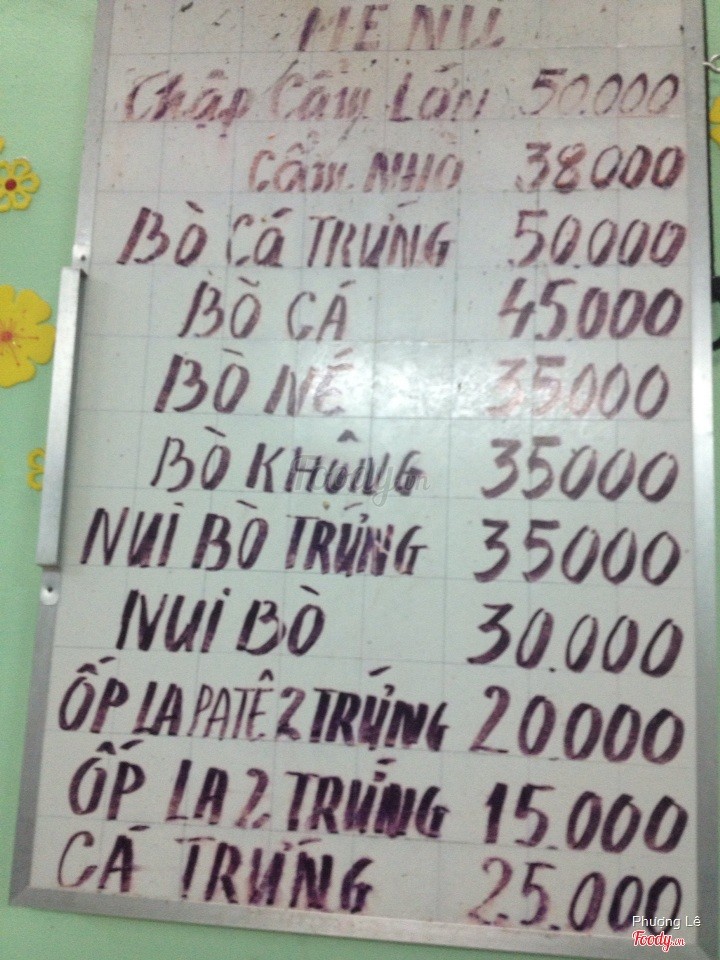 MENU
Thập Cẩm Lớn 50.000
Cẩm NHỎ 38000
BÒ Cá TRỨNG 50.000
BÒ CÁ 45000
BÒ NÉ 35000
BÒ KHÔNG 35000
NUI BÒ TRỨNG 35000
NUI BÒ 30.000
ỐP LA PATÊ 2 TRỨNG 20000
ỐP LA 2 TRỨNG 15.000
CÁ TRỨNG 25.000
Foody.vn
Phương Lê
Foody.vn